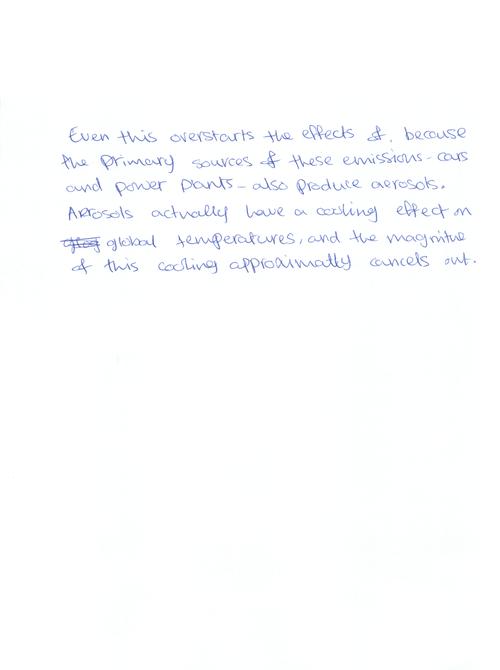 Even this overstarts the effects of, because
the primary sources of these emissions - cars
and power plants - also produce aerosols.
Aerosols actually have a cooling effect on
global temperatures, and the magnitue
of this cooling approximatly cancels out.